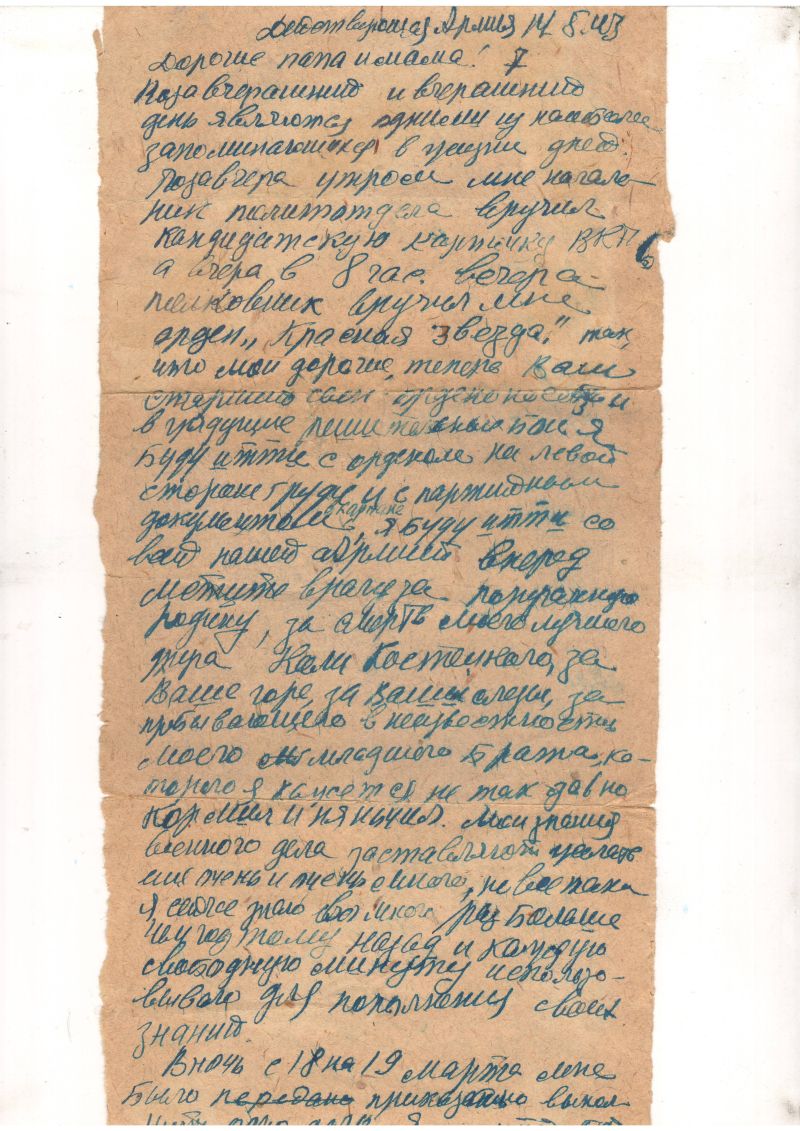 Действующая Армия 14 5.43
Дорогие папа и мама! 7
Позавчерашний и вчерашний
день являются одними из наиболее
запоминающихся в жизни дней.
Позавчера утром мне началь-
ник политотдела вручил
кандидатскую карточку ВКПб
а вчера в 8 час. вечера
полковник вручил мне
орден „Красная звезда." так,
что мои дорогие, теперь Ваш
старший сын орденоносец и
в грядущие решительные бои я
буду итти с орденом на левой
стороне груди и с партийным
документом в кармане, я буду итти со
всей нашей Армией вперед
мстить врагу за поруганную
родину, за смерть моего лучшего
друга Коли Костенко, за
Ваше горе, за Ваши слезы, за
пребывающего в неизвестности
моего младшего брата, ко-
торого я кажется не так давно
кормил и нянчил. Мои знания
военного дела заставляют желать
еще очень и очень много, но все таки
я сейчас знаю во много раз больше
чем год тому назад и каждую
свободную минуту использо-
вываю для пополнения своих
знаний.
В ночь с 18 на 19 марта мне
было передано приказано выпол
нить